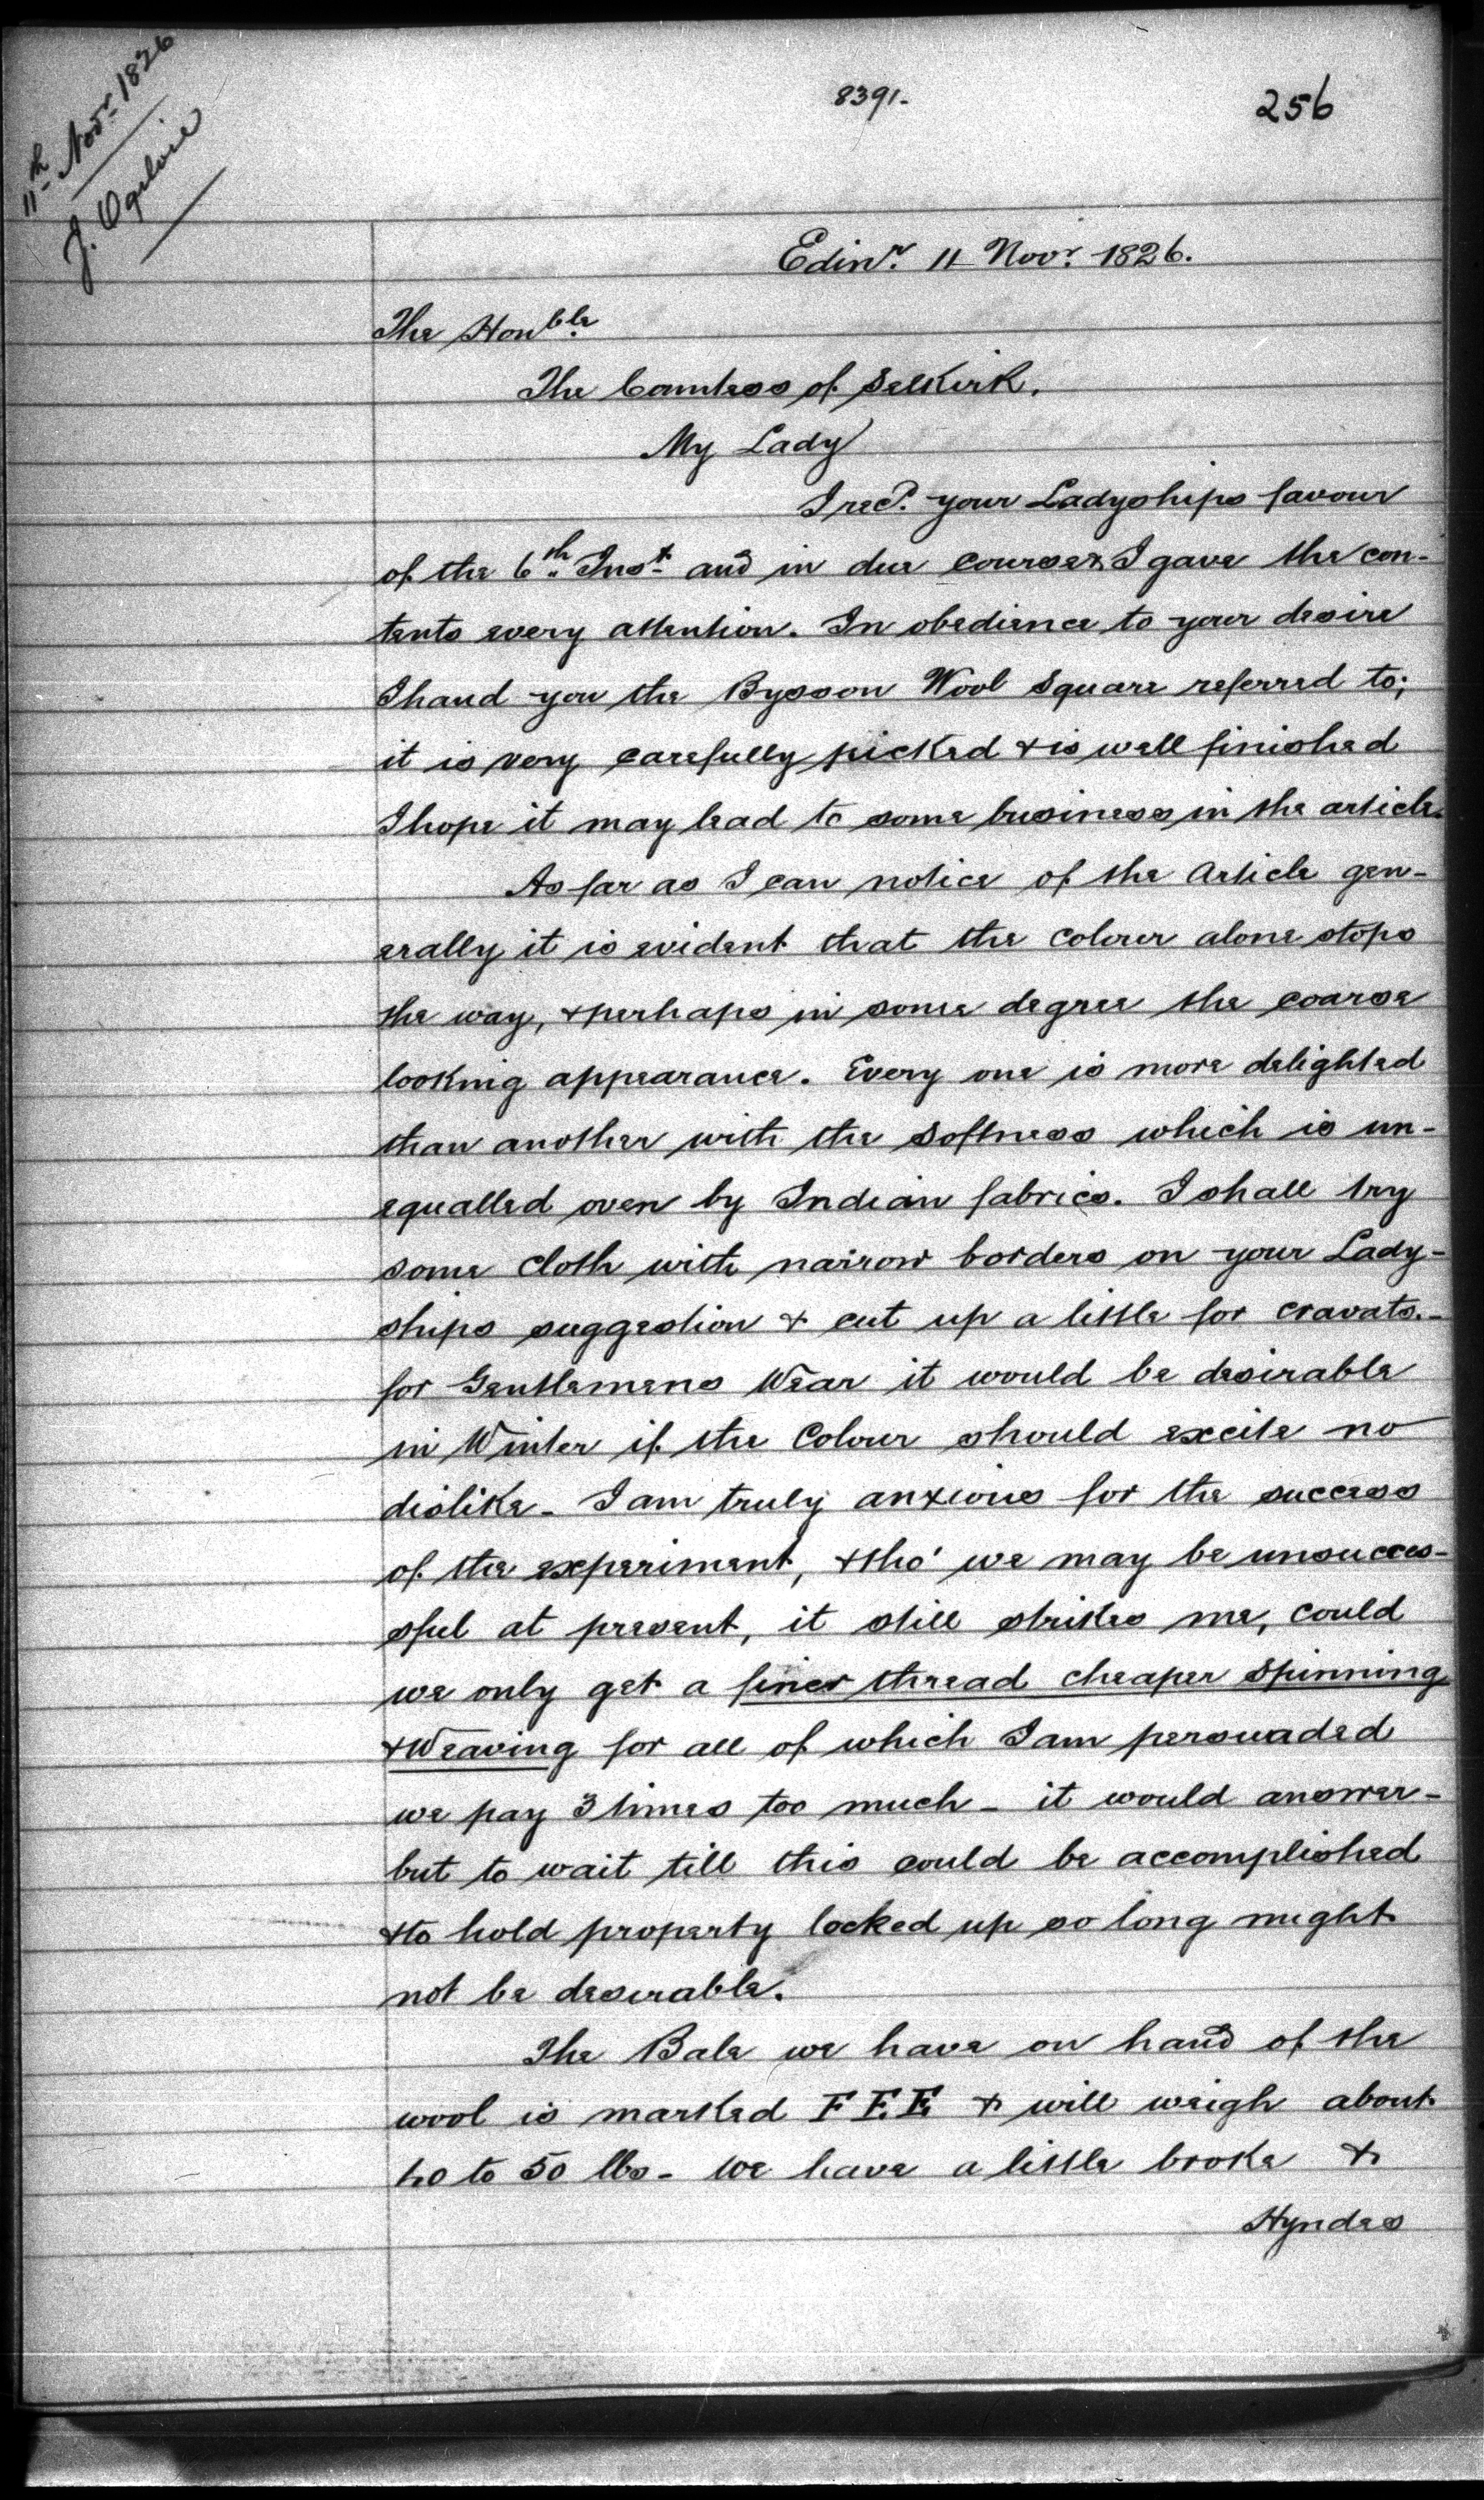 11th Novr 1826
J. Ogilvie
8391.
256
Edinr. 11 Novr. 1826.
The Honble.
The Countess of Selkirk.
My Lady
I recd. your Ladyships favour
of the 6th. Inst. and in due course & I gave the con-
tents every attention. In obedience to your desire
I hand you the Bysson Wool Square referred to;
it is very carefully picked & is well finished
I hope it may lead to some business in the article.
As far as I can notice of the Article gen-
erally it is evident that the colour alone stops
the way, & perhaps in some degree the coarse
looking appearance. Every one is more delighted
than another with the Softness which is un-
equalled even by Indian fabrics. I shall try
some Cloth with narrow borders on your Lady-
ships suggestion & cut up a little for cravats.-
for Gentlemens Wear it would be desirable
in Winter if the Colour should excite no
dislike - I am truly anxious for the success
of the experiment, & tho' we may be unsucces-
sful at present, it still strikes me, could
we only get a finer thread cheaper Spinning
& Weaving for all of which I am persuaded
we pay 3 times too much - it would answer -
but to wait till this could be accomplished
& to hold property locked up so long might
not be desirable.
The Bale we have on hand of the
wool is marked F F E & will weigh about
40 to 50 lbs - We have a little broke &
Hyndes